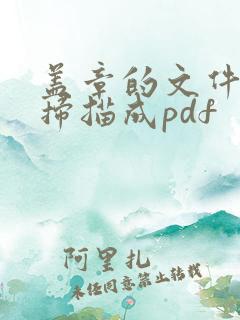 盖章的文件
扫描成pdf
阿里扎
未经同意禁止转载